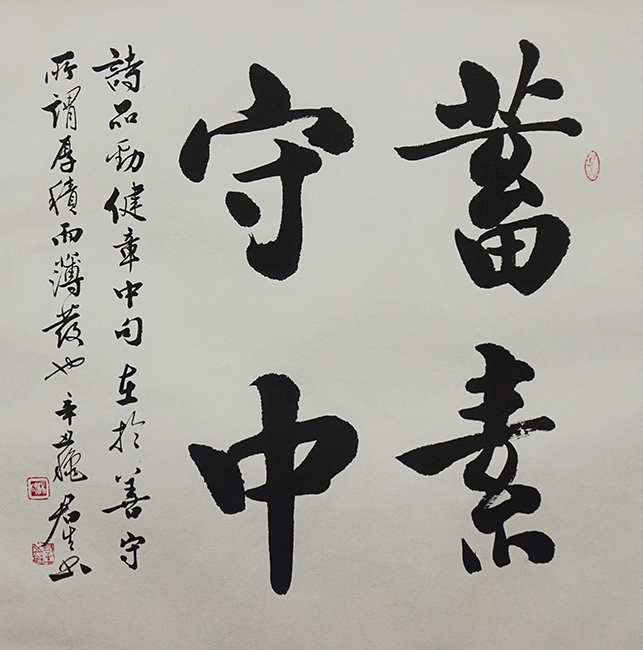 蓄素
守中
詩品勁健章中句在於善守
所謂厚積而薄發也辛丑穐君生书